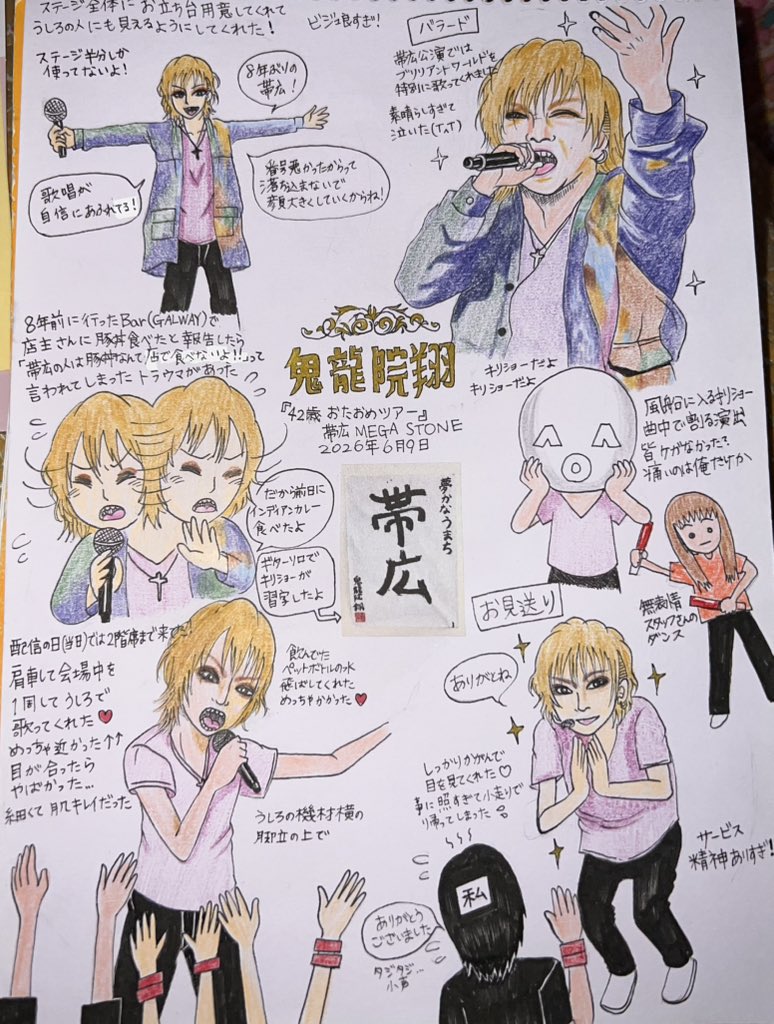 ステージ全体にお立ち台用意してくれて
うしろの人にも見えるようにしてくれた!
ビジュ良すぎ!
ステージ半分しか
使ってないよ!
8年ぶりの
帯広!
歌唱が
自信にあふれてる!
番号悪かったからって
落ち込まないで
顔大きくしていくからね!
バラード
帯広公演では
ブリリアントワールドを
特別に歌ってくれました
素晴らしすぎて
泣いた(TдT)
8年前に行ったBar(GALWAY)で
店主さんに豚丼食べたと報告したら
「帯広の人は豚丼なんて店で食べないよ!!」って
言われてしまったトラウマがあった
鬼龍院翔
『42歳 おたおめツアー』
帯広 MEGA STONE
2026年6月9日
キリショーだよ
キリショーだよ
風船に入るキリショー
曲中で割る演出
皆ケガなかった?
痛いのは俺だけか
だから前日に
インディアンカレー
食べたよ
ギターソロで
キリショーが
習字したよ
夢かなうまち
帯広
鬼龍院翔
無表情
スタッフさんの
ダンス
お見送り
配信の日(当日)では2階席まで来てた!
肩車して会場中を
1周してうしろで
歌ってくれた♥
めっちゃ近かった↑↑
目が合ったら
やばかった…
細くて肌キレイだった
飲んでた
ペットボトルの水
飛ばしてくれた
めっちゃかかった♥
うしろの機材横の
脚立の上で
ありがとね
しっかりかがんで
目を見てくれた♡
照すぎて小走りで
帰ってしまった
サービス
精神ありすぎ!
私
ありがとう
ございました
タジタジ…
小声